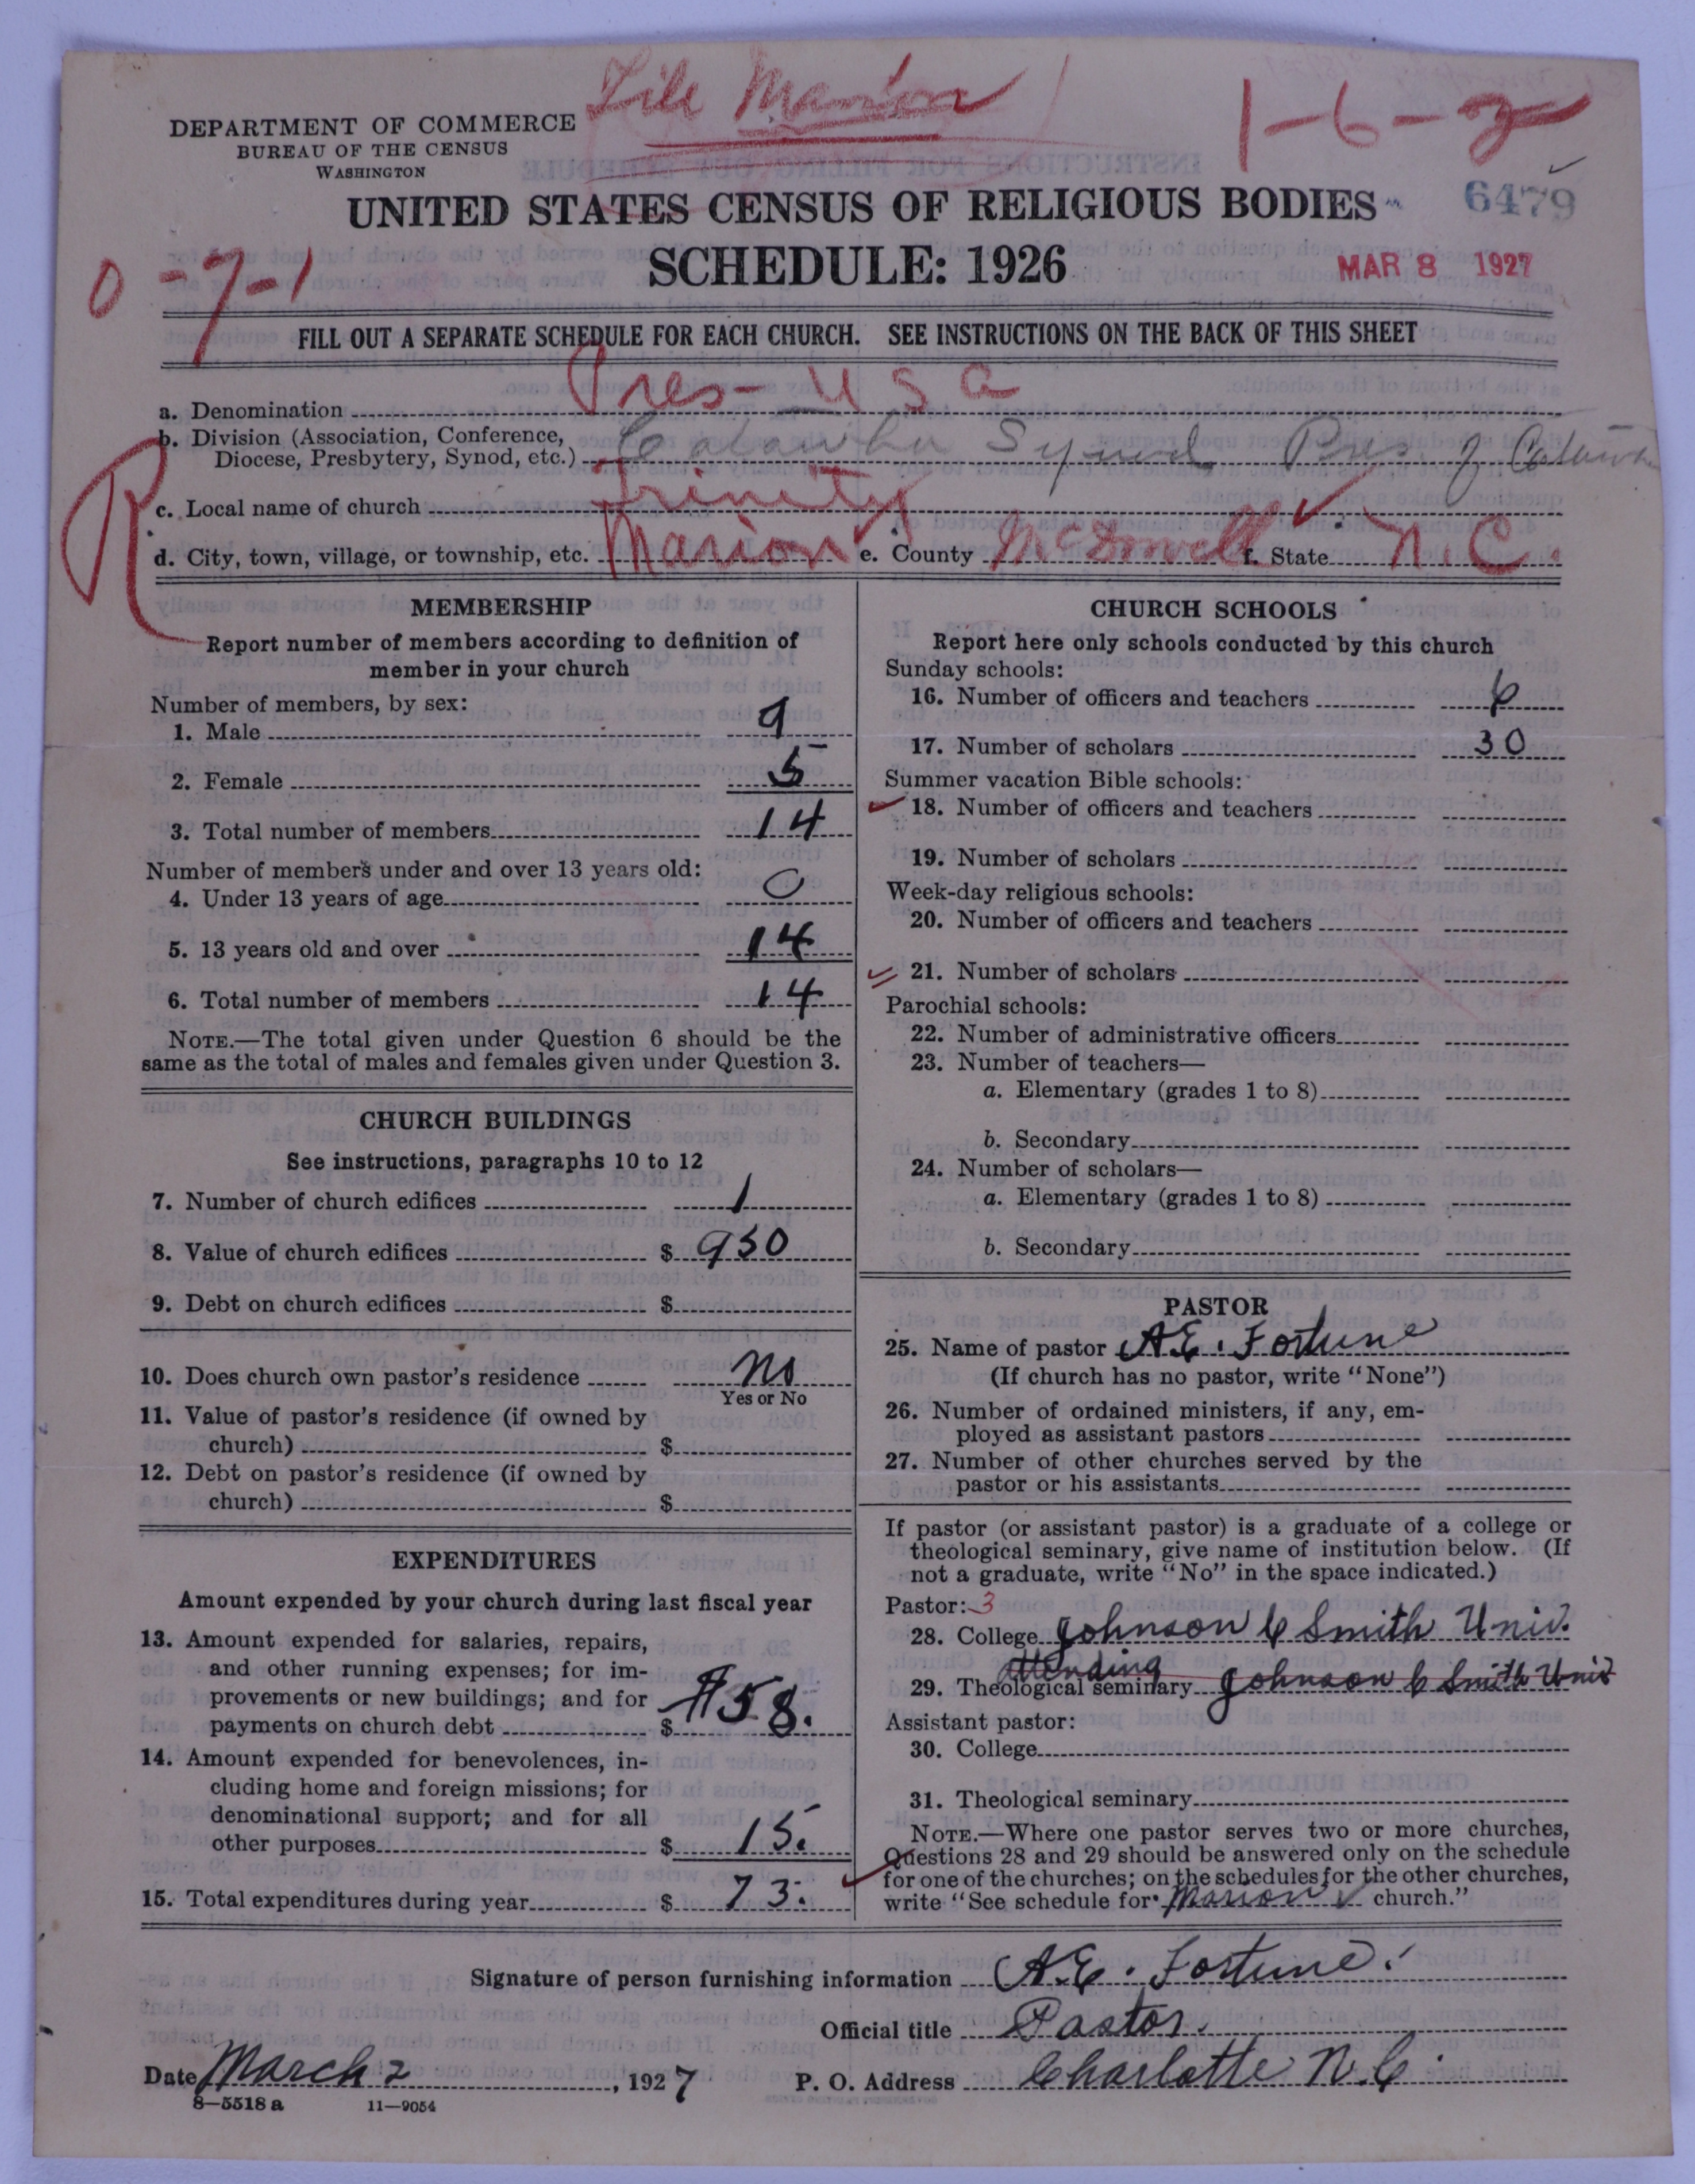 File Marion
1-6-2
DEPARTMENT OF COMMERCE
BUREAU OF THE CENSUS
WASHINGTON
UNITED STATES CENSUS OF RELIGIOUS BODIES
6479
SCHEDULE: 1926
MAR 8 1927
0-7-1
FILL OUT A SEPARATE SCHEDULE FOR EACH CHURCH. SEE INSTRUCTIONS ON THE BACK OF THIS SHEET
a. Denomination Pres- U S a
b. Division (Association, Conference,
Diocese, Presbytery, Synod, etc.) Catawba Synod Pres. of Catawba
R
c. Local name of church Trinity
d. City, town, village, or township, etc. Marion e. County McDowell f. State N.C.
MEMBERSHIP
Report number of members according to definition of
member in your church
Number of members, by sex:
1. Male 9
2. Female 5
3. Total number of members 14
Number of members under and over 13 years old:
4. Under 13 years of age 0
5. 13 years old and over 14
6. Total number of members 14
NOTE.—The total given under Question 6 should be the
same as the total of males and females given under Question 3.
CHURCH BUILDINGS
See instructions, paragraphs 10 to 12
7. Number of church edifices 1
8. Value of church edifices $ 950
9. Debt on church edifices $
10. Does church own pastor's residence No
Yes or No
11. Value of pastor's residence (if owned by
church) $
12. Debt on pastor's residence (if owned by
church) $
EXPENDITURES
Amount expended by your church during last fiscal year
13. Amount expended for salaries, repairs,
and other running expenses; for im-
provements or new buildings; and for
payments on church debt $ $58.
14. Amount expended for benevolences, in-
cluding home and foreign missions; for
denominational support; and for all
other purposes $ 15.
15. Total expenditures during year $ 73.
CHURCH SCHOOLS
Report here only schools conducted by this church
Sunday schools:
16. Number of officers and teachers 6
17. Number of scholars 30
Summer vacation Bible schools:
18. Number of officers and teachers
19. Number of scholars
Week-day religious schools:
20. Number of officers and teachers
21. Number of scholars
Parochial schools:
22. Number of administrative officers
23. Number of teachers—
a. Elementary (grades 1 to 8)
b. Secondary
24. Number of scholars—
a. Elementary (grades 1 to 8)
b. Secondary
PASTOR
25. Name of pastor A.E. Fortune
(If church has no pastor, write "None")
26. Number of ordained ministers, if any, em-
ployed as assistant pastors
27. Number of other churches served by the
pastor or his assistants
If pastor (or assistant pastor) is a graduate of a college or
theological seminary, give name of institution below. (If
not a graduate, write "No" in the space indicated.)
Pastor: 3
28. College Johnson C Smith Univ.
attending
29. Theological seminary Johnson C Smith Univ
Assistant pastor:
30. College
31. Theological seminary
NOTE.—Where one pastor serves two or more churches,
Questions 28 and 29 should be answered only on the schedule
for one of the churches; on the schedules for the other churches,
write "See schedule for Marion church."
Signature of person furnishing information A.E. Fortune.
Official title Pastor.
Date March 2, 1927 P. O. Address Charlotte N.C.
8—5518 a 11—9054